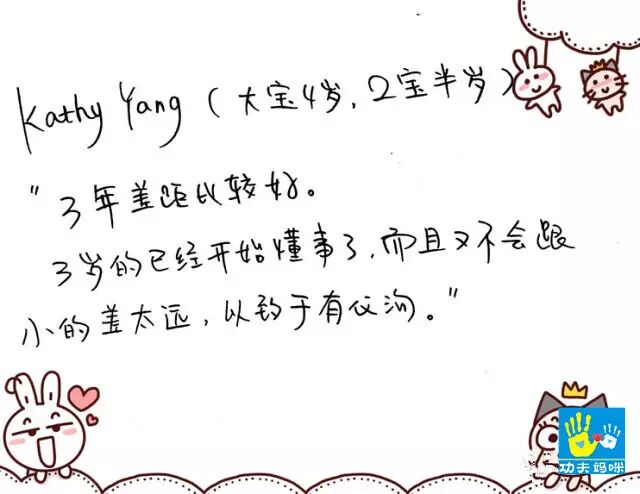 Kathy Yang（大宝4岁，2宝半岁）
"3年差距比较好。
3岁的已经开始懂事了，而且又不会跟
小的差太远，以致于有代沟。"
功夫妈咪